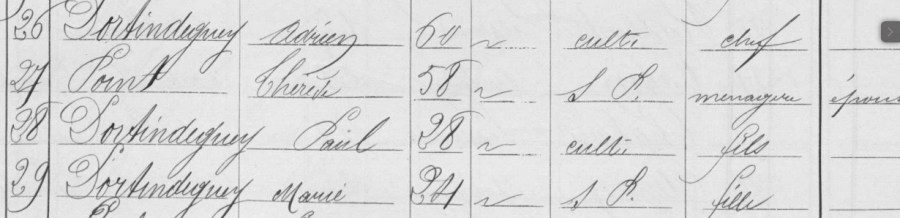 26 Dortindeguy Adrien 60 ~ cultr chef
27 Point Thérèse 58 ~ S P. menagere épous
28 Dortindeguy Paul 28 ~ cultr fils
29 Dortindeguy Marie 24 ~ S P. fille